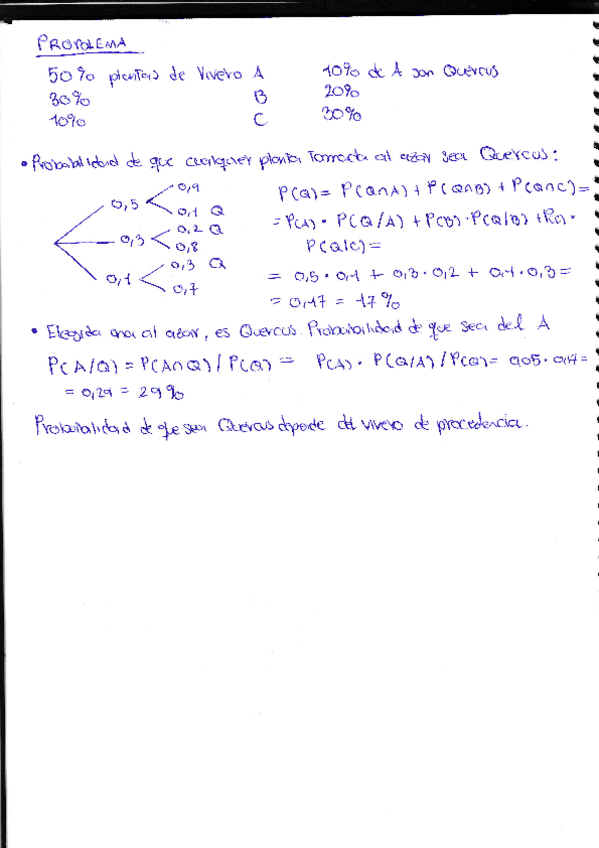 PROBLEMA
50% plantas de vivero A 10% de A son Quercus
30% B 20%
10% C 30%
• Probabilidad de que cualquier planta tomada al azar sea Quercus:
0,5 0,9
0,1 Q
0,3 0,2 Q
0,8
0,1 0,3 Q
0,7
P(Q) = P(Q∩A) + P(Q∩B) + P(Q∩C) =
= P(A) · P(Q/A) + P(B) · P(Q/B) + P(C) ·
P(Q/C) =
= 0,5 · 0,1 + 0,3 · 0,2 + 0,1 · 0,3 =
= 0,17 = 17%
• Elegida una al azar, es Quercus. Probabilidad de que sea del A
P(A/Q) = P(A∩Q) / P(Q) = P(A) · P(Q/A) / P(Q) = 0,05 · 0,17 =
= 0,29 = 29%
Probabilidad de que sea Quercus depende del vivero de procedencia.